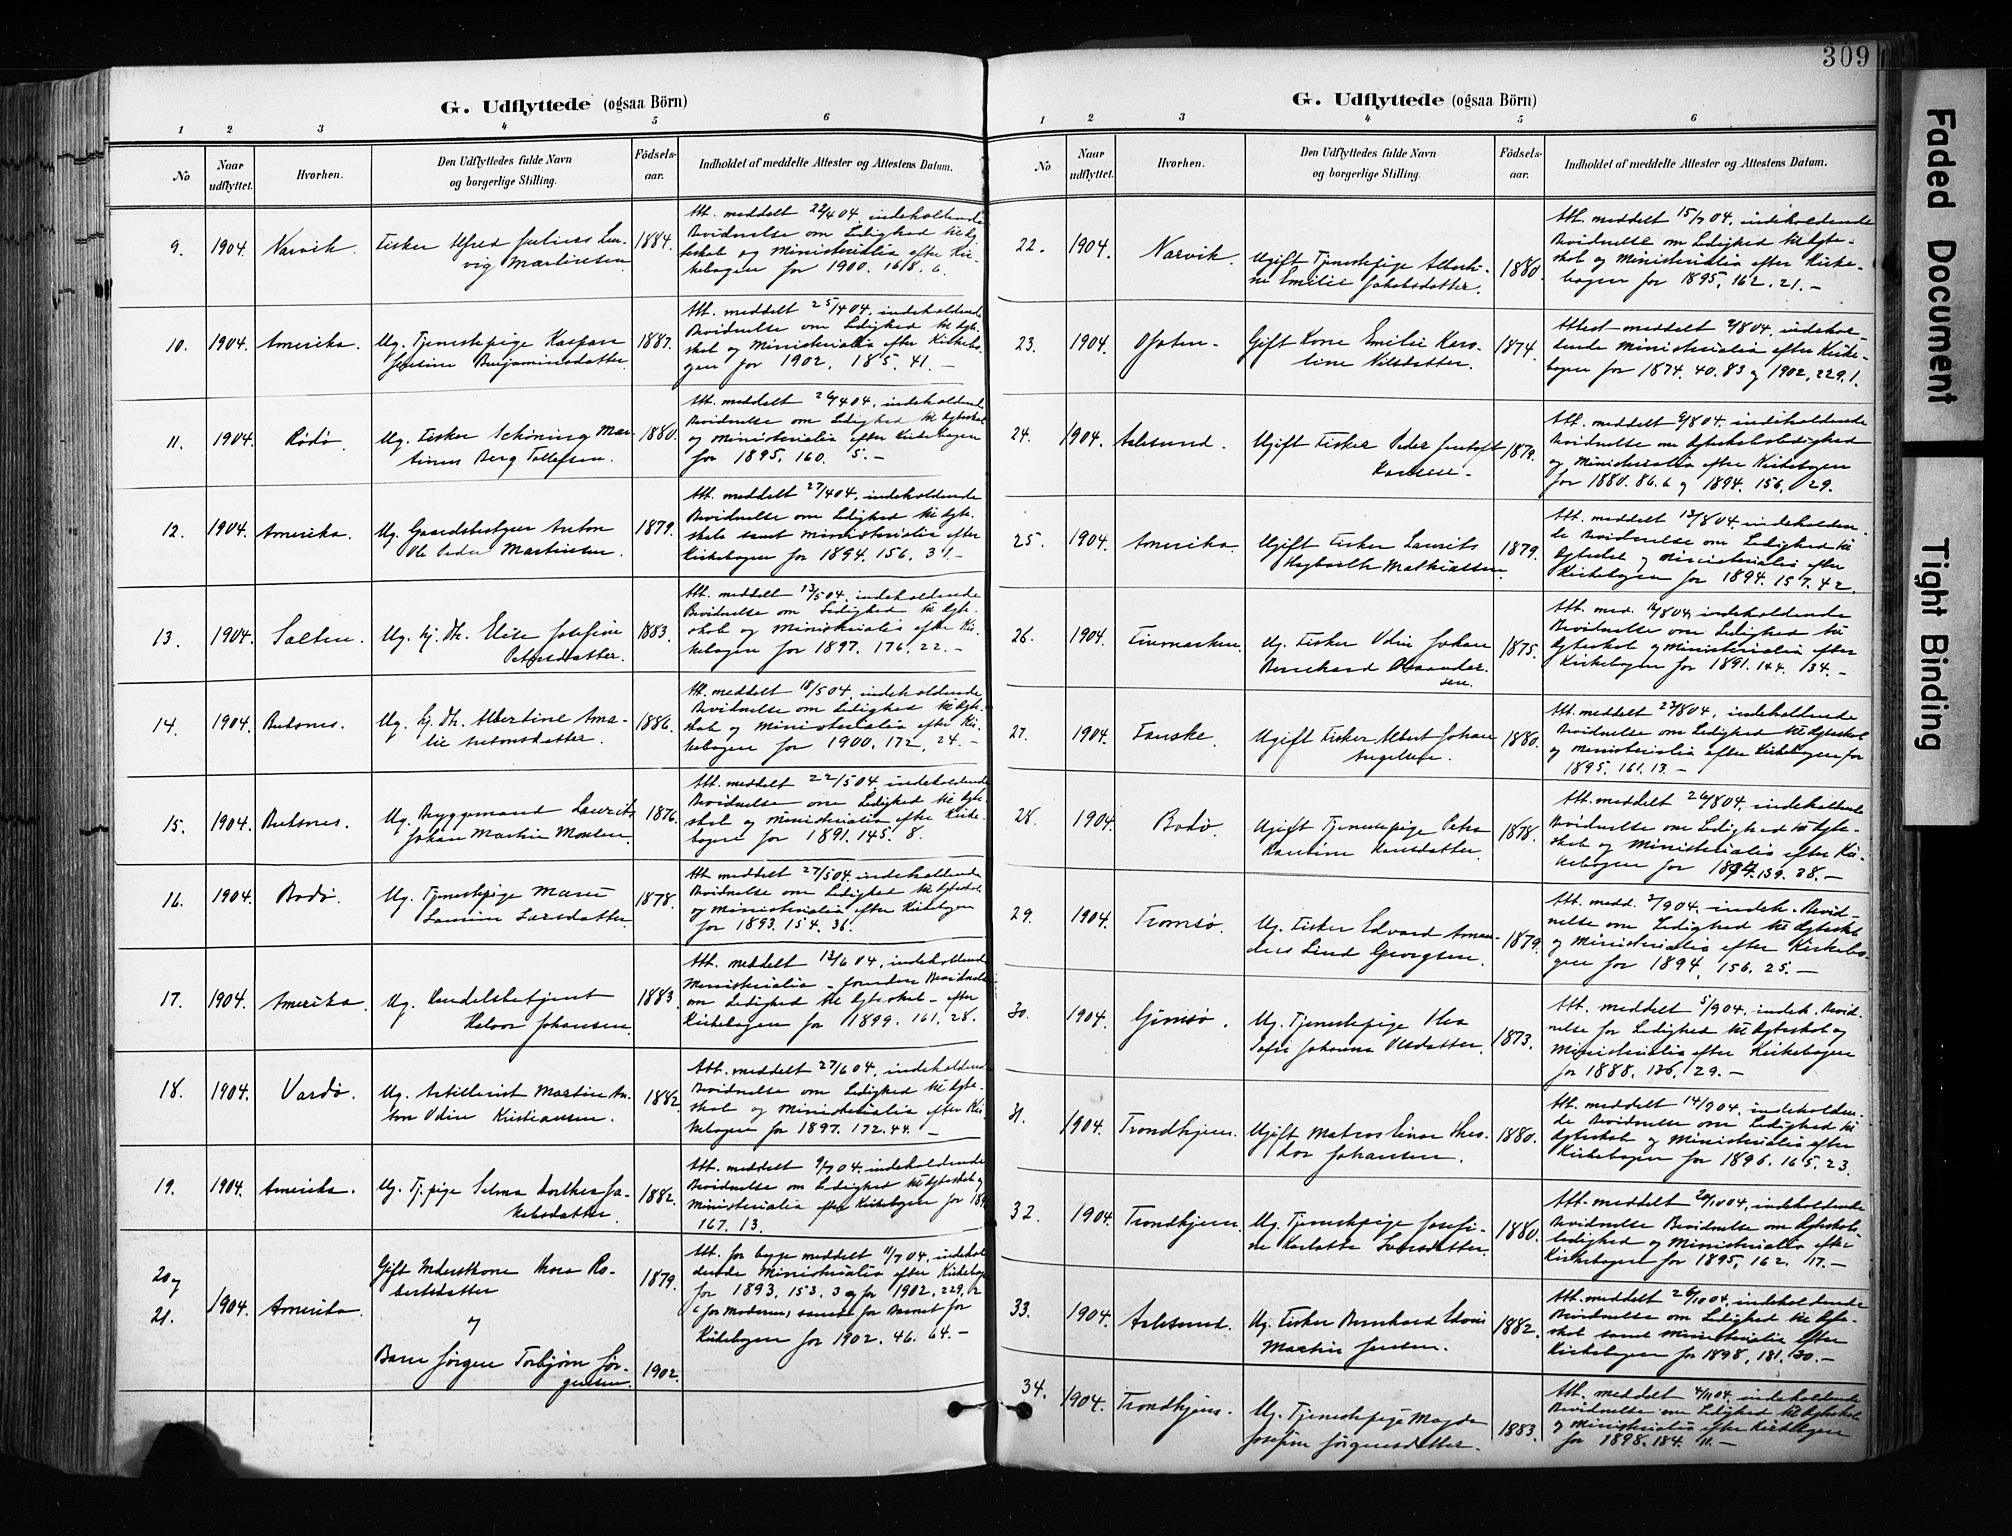 309
G. Udflyttede (ogsaa Börn)
1 2 3 4 5 6
No Naar udflyttet. Hvorhen. Den Udflyttedes fulde Navn og borgerlige Stilling. Födsels-aar. Indholdet af meddelte Attester og Attestens Datum.
9. 1904. Narvik. Fisker Alfred Julius Lud-
vig Martinsen 1884.
Att. meddelt 22/4 04, indeholdende
Bevidnelse om Ledighed til Ægte-
skab og Ministerialia efter Kir-
kebogen for 1900. 168. 6.
10. 1904. Amerika. Ug. Tjenestepige Kaspara
Justine Benjaminsdatter. 1887.
Att. meddelt 25/4 04, indeholdende
Bevidnelse om Ledighed til Ægte-
skab og Ministerialia efter Kirkebo-
gen for 1902. 185. 41. —
11. 1904. Rødø. Ug. Fisker Schöning Mar-
tinus Berg Tollefsen. 1880.
Att. meddelt 26/4 04, indeholdende
Bevidnelse om Ledighed til Ægteskab
og Ministerialia efter Kirkebogen
for 1895. 160. 5. —
12. 1904. Amerika. Ug. Gaardsbestyrer Anton
Ole Peder Martinsen. 1879.
Att. meddelt 27/4 04, indeholdende
Bevidnelse om Ledighed til Ægte-
skab samt Ministerialia efter
Kirkebogen for 1894. 156. 31. —
13. 1904. Salten. Ug. hj. Dtr. Elise Josefine
Petersdatter. 1883.
Att. meddelt 13/5 04, indeholdende
Bevidnelse om Ledighed til Ægte-
skab og Ministerialia efter Kir-
kebogen for 1897. 176. 22. —
14. 1904. Buksnes. Ug. hj. Dtr. Albertine Ama-
lie Antonsdatter. 1886.
Att. meddelt 18/5 04, indeholdende
Bevidnelse om Ledighed til Ægte-
skab og Ministerialia efter Kir-
kebogen for 1900. 172. 24. —
15. 1904. Buksnes. Ug. Byggmand Laurits
Johan Martin Monsen 1876.
Att. meddelt 22/5 04, indeholdende
Bevidnelse om Ledighed til Ægte-
skab og Ministerialia efter Kirke-
bogen for 1891. 145. 8.
16. 1904. Bodø. Ug. Tjenestepige Marie
Laurine Larsdatter 1878.
Att. meddelt 27/5 04, indeholdende
Bevidnelse om Ledighed til Ægteskab
og Ministerialia efter Kirkebogen
for 1893. 154. 36.
17. 1904. Amerika. Ug. Handelsbetjent
Halvor Johansen. 1883.
Att. meddelt 13/6 04, indeholdende
Ministerialia - foruden Bevidnelse
om Ledighed til Ægteskab - efter
Kirkebogen for 1899. 161. 28.
18. 1904. Vardø. Ug. Artillerist Martin An-
ton Odin Kristiansen. 1882.
Att. meddelt 27/6 04, indeholdende
Bevidnelse om Ledighed til Ægte-
skab og Ministerialia efter Kir-
kebogen for 1897. 172. 44. —
19. 1904. Amerika. Ug. Tj.pige Selma Dorthea Ja-
kobsdatter. 1882.
Att. meddelt 9/7 04, indeholdende
Bevidnelse om Ledighed til Ægteskab og
Ministerialia efter Kirkebogen for
167. 13.
20 og
21. 1904. Amerika. Gift Inderstkone Thora Ro-
bertsdatter 1879.
og
Barn Jörgen Torbjörn Jör-
gensen. 1902.
Att. for begge meddelt 11/7 04, indehol-
dende Ministerialia efter Kirkebogen
for 1893. 153. 3 og for 1902. 229.
for Moderen, samt for Barnet for
Kirkebogen for 1902. 46. 64. —
G. Udflyttede (ogsaa Börn)
1 2 3 4 5 6
No Naar udflyttet. Hvorhen. Den Udflyttedes fulde Navn og borgerlige Stilling. Födsels-aar. Indholdet af meddelte Attester og Attestens Datum.
22. 1904. Narvik. Ugift Tjenestepige Alberti-
ne Emilie Jakobsdatter. 1880.
Att. meddelt 15/7 04, indeholdende
Bevidnelse om Ledighed til Ægte-
skab og Ministerialia efter Kirke-
bogen for 1895. 162. 21. —
23. 1904. Ofoten. Gift Kone Emilie Karo-
line Nilsdatter. 1874.
Attest meddelt 2/8 04, indehol-
dende Ministerialia efter Kirke-
bogen for 1874. 40. 83 og 1902. 229. 1.
24. 1904. Aalesund. Ugift Fisker Peder Gustaf
Hansen. 1879.
Att. meddelt 9/8 04, indeholdende
Bevidnelse om Ægteskabsledighed
og Ministerialia efter Kirkebogen
for 1880. 86. 6 og 1894. 156. 29.
25. 1904. Amerika. Ugift Fisker Laurits
Hagbarth Mathiassen 1879.
Att. meddelt 13/8 04, indeholden-
de Bevidnelse om Ledighed til
Ægteskab og Ministerialia efter
Kirkebogen for 1894. 157. 42.
26. 1904. Finmarken. Ug. Fisker Odin Johan
Bernhard
sen. 1875.
Att. med. 16/8 04, indeholdende
Bevidnelse om Ledighed til
Ægteskab og Ministerialia efter
Kirkebogen for 1891. 144. 134. —
27. 1904. Fauske. Ugift Fisker Albert Johan
Angelsen. 1880.
Att. meddelt 23/8 04, indeholdende
Bevidnelse om Ledighed til Ægteskab
og Ministerialia efter Kirkebogen for
1895. 161. 13. —
28. 1904. Bodø. Ugift Tjenestepige Petra
Hansdatter. 1878.
Att. meddelt 26/8 04, indeholdende
Bevidnelse om Ledighed til Ægte-
skab og Ministerialia efter Kir-
kebogen for 1894. 139. 38. —
29. 1904. Tromsø. Ug. Fisker Edvard Aman-
dus Lind Georgsen. 1879.
Att. medd. 2/9 04, indeh. Bevid-
nelse om Ledighed til Ægteskab
og Ministerialia efter Kirkebo-
gen for 1894. 156. 25. —
30. 1904. Gimsø. Ug. Tjenestepige Thea
Sofie Johanna Olsdatter. 1873.
Att. meddelt 5/9 04, indeh. Bevid-
nelse for Ledighed til Ægteskab og
Ministerialia efter Kirkebogen
for 1888. 136. 29. —
31. 1904. Trondhjem. Ugift Matros Einar Theo-
dor Johansen. 1880.
Att. meddelt 14/9 04, indeholden-
de Bevidnelse om Ledighed til
Ægteskab og Ministerialia efter
Kirkebogen for 1896. 165. 23.
32. 1904. Trondhjem. Ug. Tjenestepige Josefi-
ne Karlotta Iversdatter. 1880.
Att. meddelt 20/10 04, indeholdende
Bevidnelse Bevidnelse om Ægteskabs-
ledighed og Ministerialia efter
Kirkebogen for 1895. 162. 17. —
33. 1904. Aalesund. Ug. Fisker Bernhard Edvin
Martin Jensen. 1882.
Att. meddelt 26/10 04, indeholdende
Bevidnelse om Ledighed til Ægte-
skab samt Ministerialia efter
Kirkebogen for 1898. 181. 30. —
34. 1904. Trondhjem. Ug. Tjenestepige Magda
Josefine Jörgensdatter. 1883.
Att. meddelt 4/11 04, indeholdende
Bevidnelse om Ledighed til Ægteskab
og Ministerialia efter Kirkebogen
for 1898. 184. 11. —
Faded Document
Tight Binding